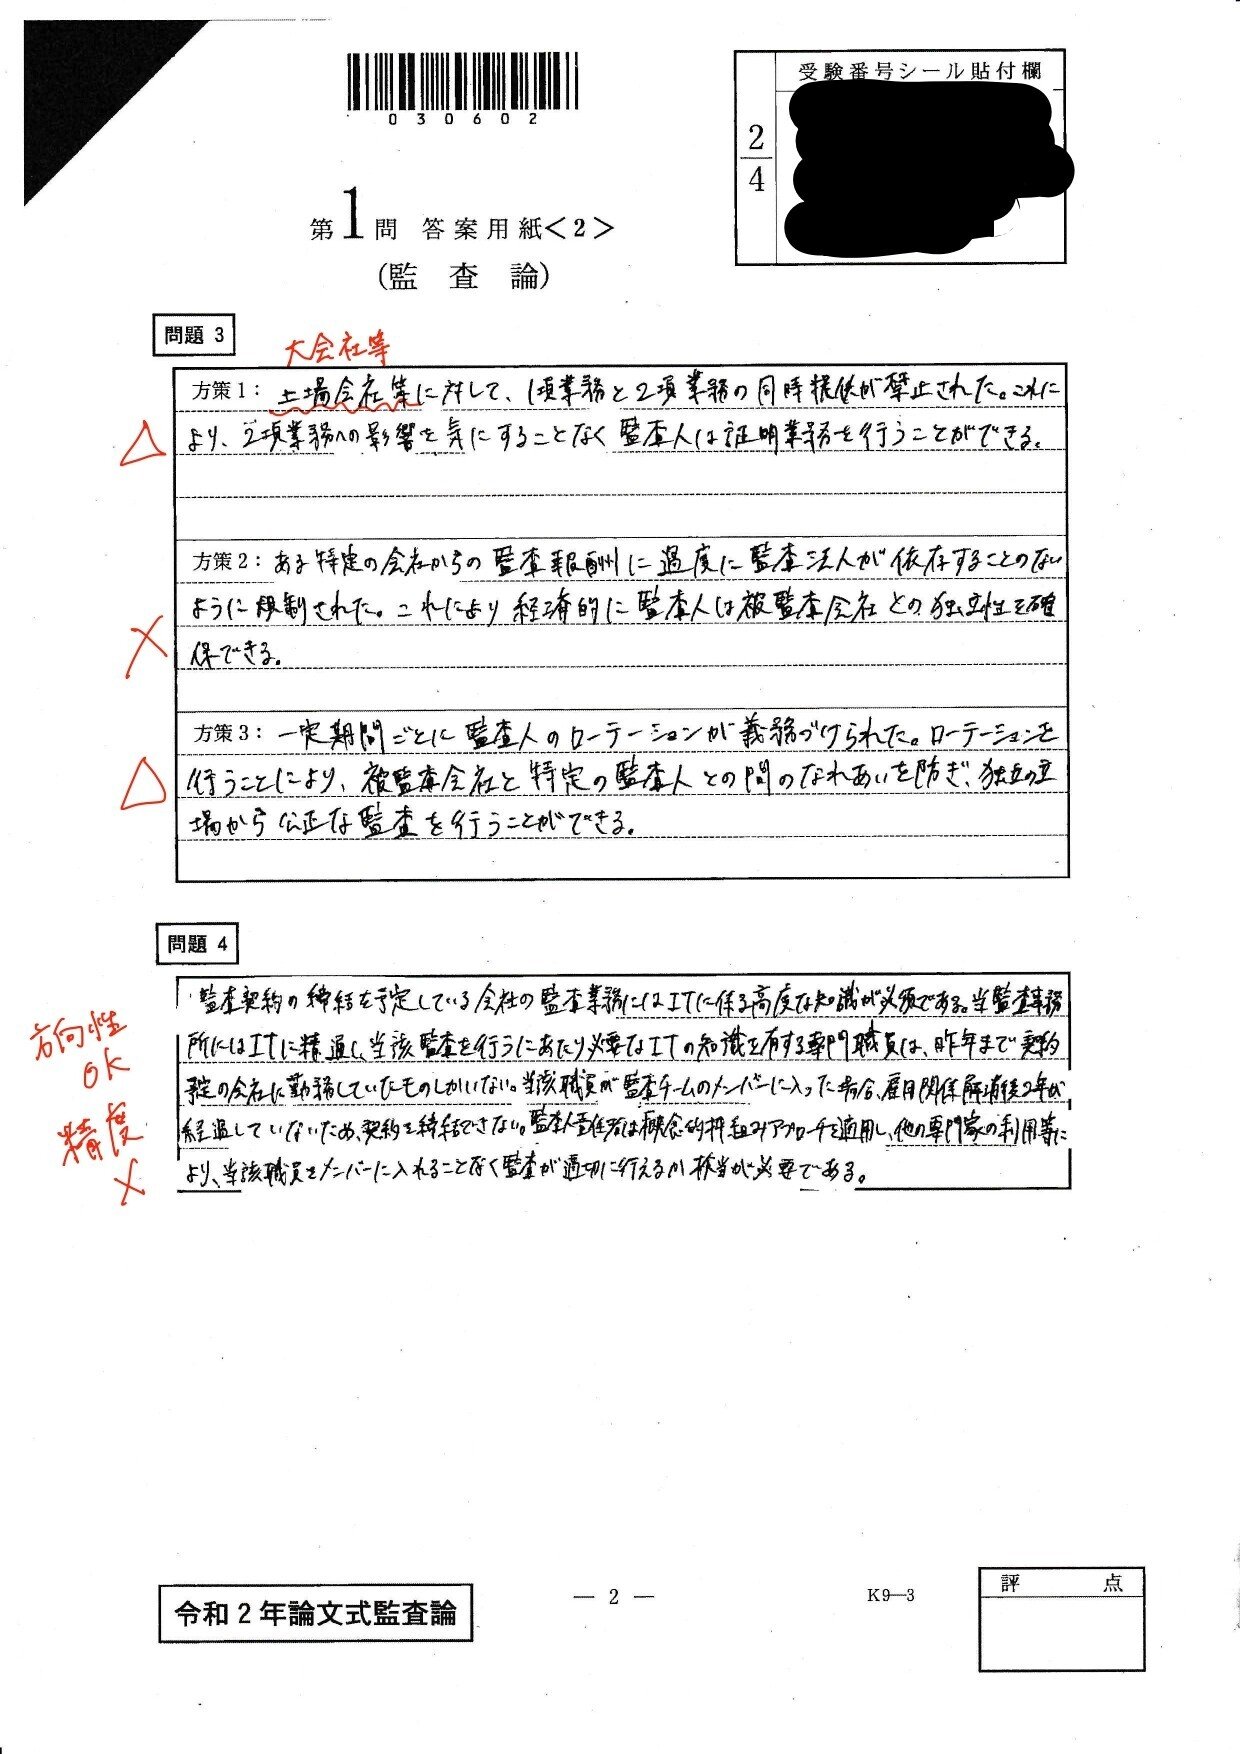 030602
受験番号シール貼付欄
2
4
第1問 答案用紙<2>
(監査論)
問題 3
大会社等
方策1: 上場会社等に対して、1項業務と2項業務の同時提供が禁止された。これに
より、2項業務への影響を気にすることなく監査人は証明業務を行うことができる。
△
方策2: ある特定の会社からの監査報酬に過度に監査法人が依存することのない
ように規制された。これにより経済的に監査人は被監査会社との独立性を確
保できる。
×
方策3: 一定期間ごとに監査人のローテーションが義務づけられた。ローテーションを
行うことにより、被監査会社と特定の監査人との間のなれあいを防ぎ、独立の立
場から公正な監査を行うことができる。
△
問題 4
監査契約の締結を予定している会社の監査業務にはITに係る高度な知識が必須である。当監査事務
所にはITに精通し、当該監査を行うにあたり必要なITの知識を有する専門職員は、昨年まで契約
予定の会社に勤務していたものしかいない。当該職員が監査チームのメンバーに入った場合、雇用関係解消後2年が
経過していないため、契約を締結できない。監査人責任者は概念的枠組みアプローチを適用し、他の専門家の利用等に
より、当該職員をメンバーに入れることなく監査が適切に行えるか検当が必要である。
方向性
OK
精度
×
令和2年論文式監査論
— 2 —
K9—3
評点